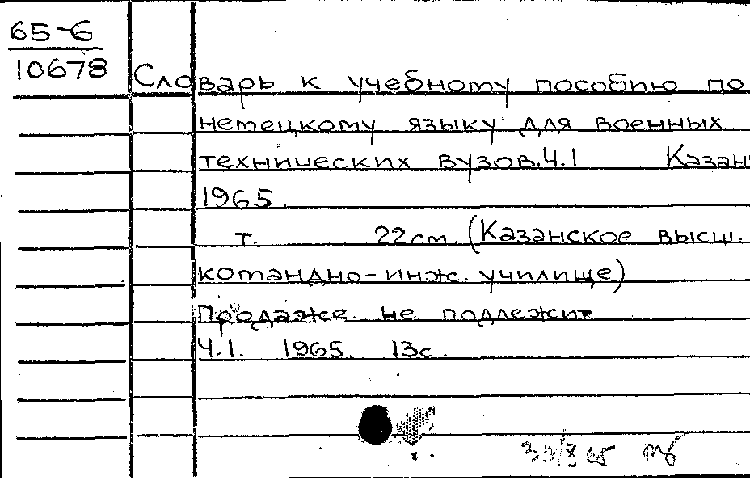 65-6
10678
Словарь к учебному пособию по
немецкому языку для военных
технических вузов. Ч.1 Казан
1965.
т. 22см. (Казанское высш.
командно-инж. училище)
Продаже не подлежит
Ч.1. 1965. 13с.